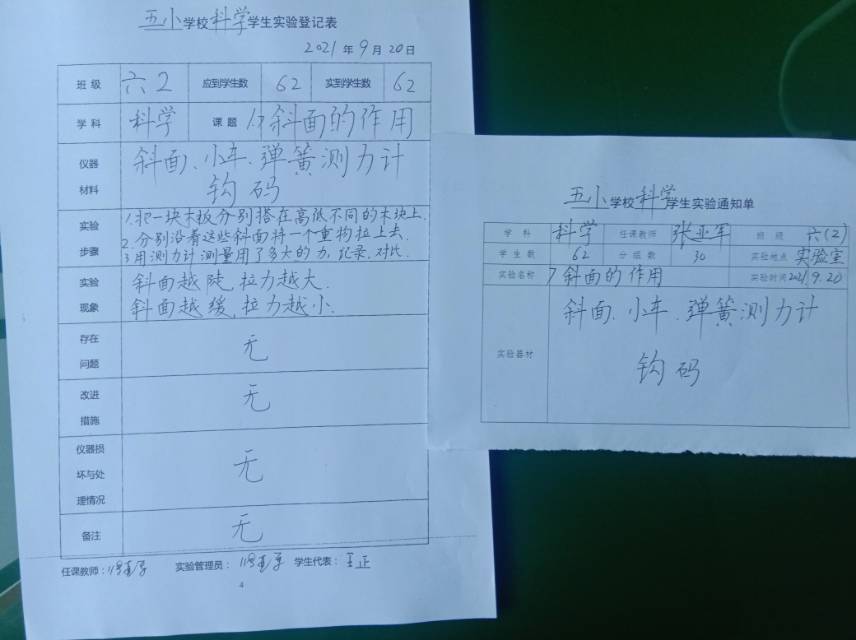 五小学校科学学生实验登记表
2021年9月20日
班级 六2 应到学生数 62 实到学生数 62
学科 科学 课题 1.7斜面的作用
仪器材料 斜面、小车、弹簧测力计
钩码
实验步骤 1.把一块木板分别搭在高低不同的木块上.
2.分别沿着这些斜面将一个重物拉上去.
3.用测力计测量用了多大的力,纪录,对比.
实验现象 斜面越陡,拉力越大.
斜面越缓,拉力越小.
存在问题 无
改进措施 无
仪器损坏与处理情况 无
备注 无
任课教师: 实验管理员: 学生代表:王正
4
五小学校科学学生实验通知单
学科 科学 任课教师 张亚军 班级 六(2)
学生数 62 分组数 30 实验地点 实验室
实验名称 7斜面的作用 实验时间 2021.9.20
实验器材 斜面、小车、弹簧测力计
钩码